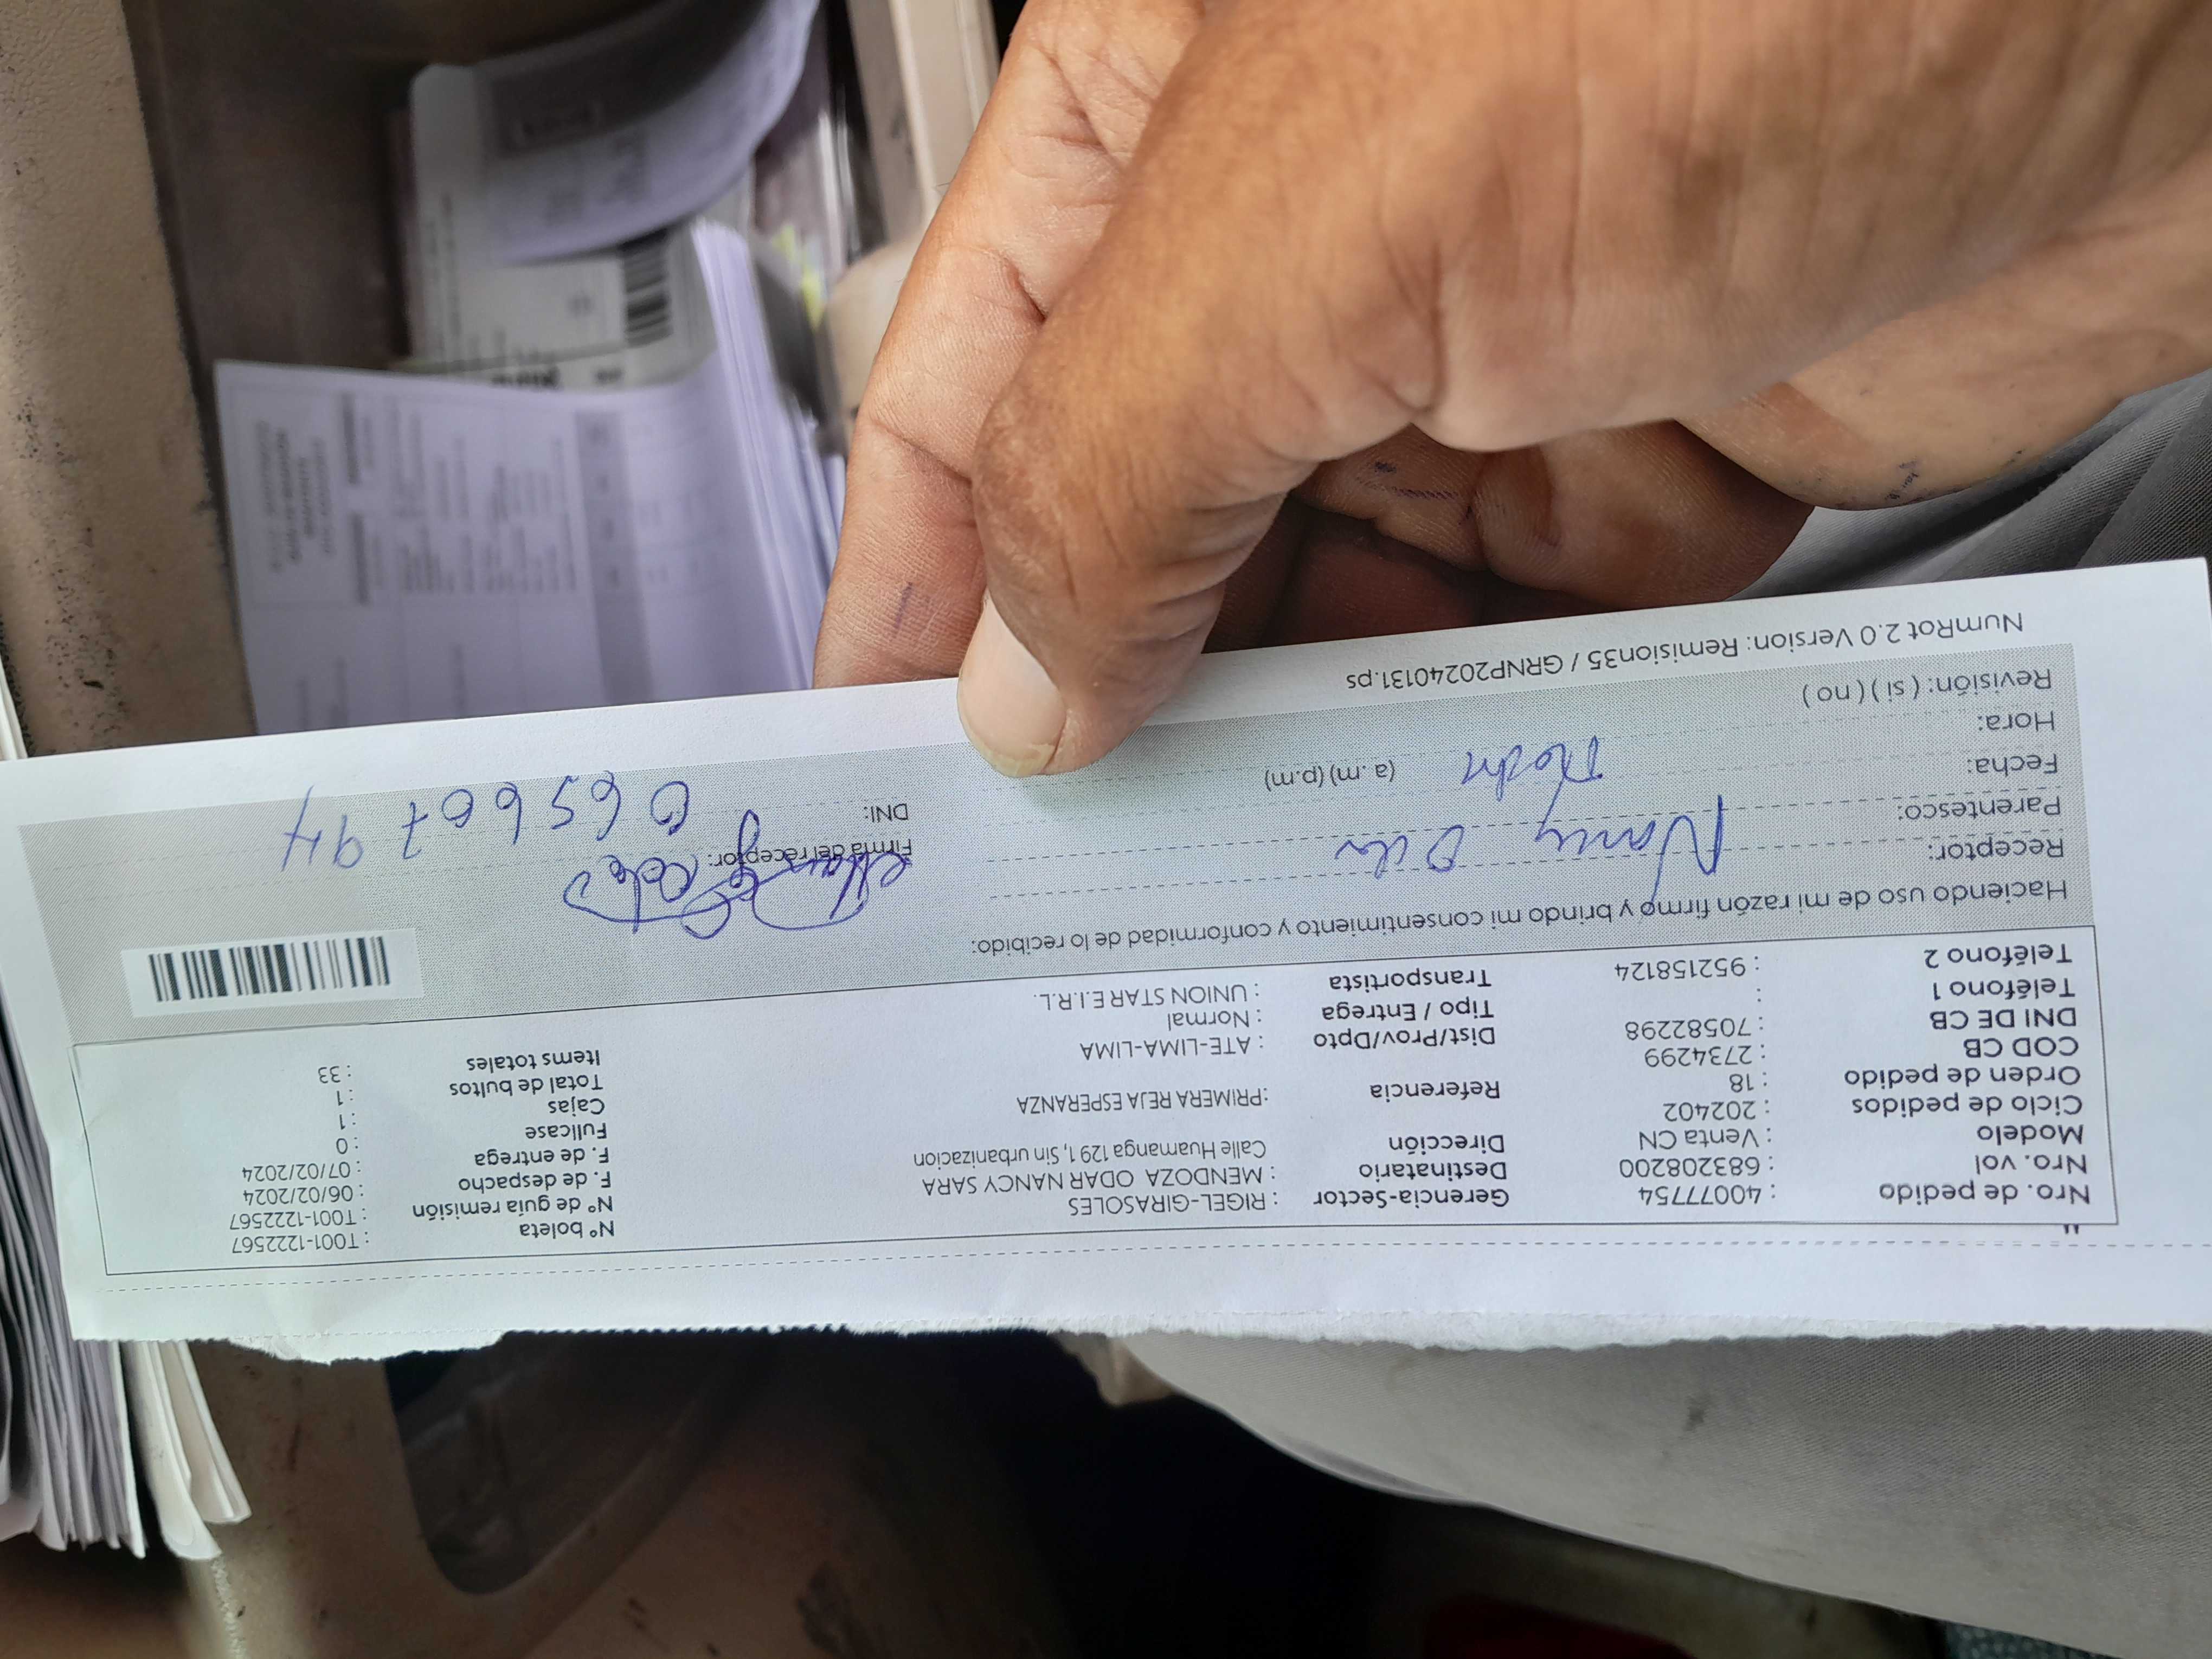 Nro. de pedido : 40077754 Gerencia-Sector : RIGEL-GIRASOLES Nº boleta : T001-1222567
Nro. vol : 683208200 Destinatario : MENDOZA ODAR NANCY SARA Nº de guía remisión : T001-1222567
Modelo : Venta CN Dirección Calle Huamanga 129 1, Sin urbanizacion F. de despacho : 06/02/2024
Ciclo de pedidos : 202402 F. de entrega : 07/02/2024
Orden de pedido : 18 Referencia :PRIMERA REJA ESPERANZA Fullcase : 0
COD CB : 2734299 Cajas : 1
DNI DE CB : 70582298 Dist/Prov/Dpto : ATE-LIMA-LIMA Total de bultos : 1
Teléfono 1 : Tipo / Entrega : Normal Items totales : 33
Teléfono 2 : 952158124 Transportista : UNION STAR E.I.R.L.
Haciendo uso de mi razón firmo y brindo mi consentimiento y conformidad de lo recibido:
Receptor: Nancy Firma del receptor:
Parentesco: DNI: 06566794
Fecha:
Hora: (a.m) (p.m)
Revisión: ( si ) ( no )
NumRot 2.0 Version: Remision35 / GRNP20240131.ps